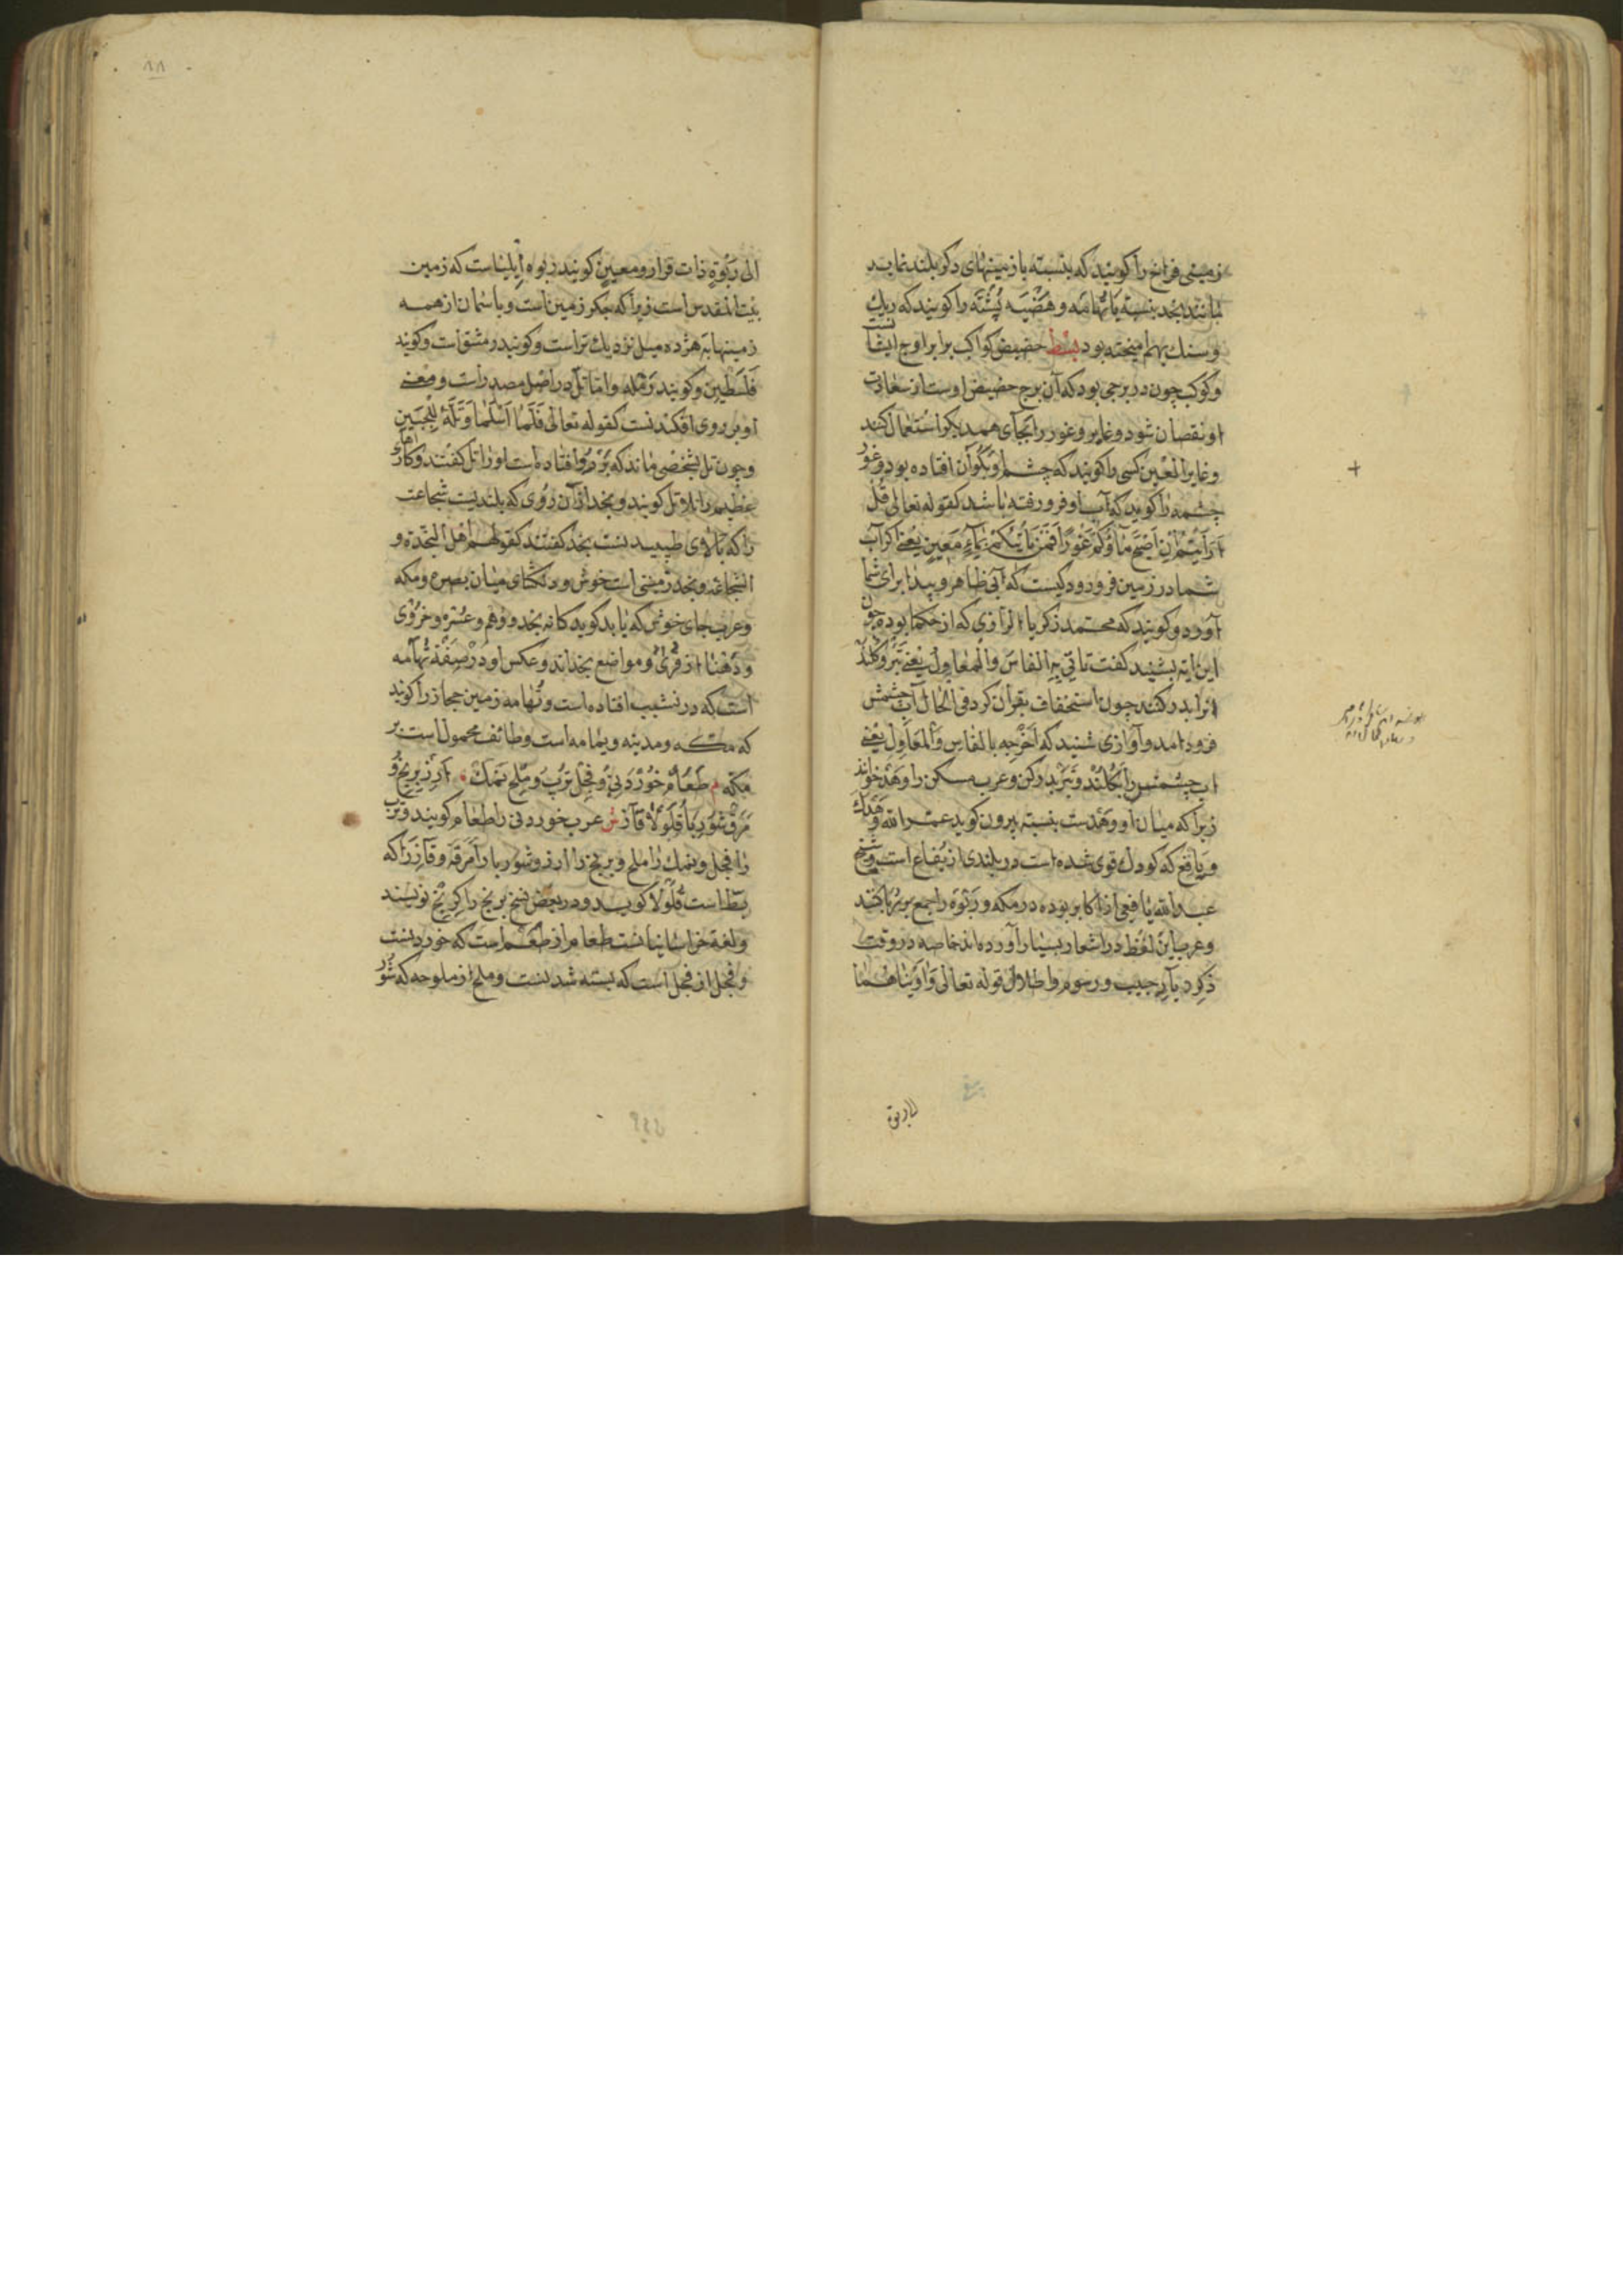 زمینی فراخ را کویند که بنسبته با زمینهای دکر بلند نماید
مانند نجد بنسبته با تهامه و هضبه پشته را کویند که ریك
و سنك بهم امیخته بود بسط حضیض کواکب برابر اوج ایشانست
و کوکب چون در برجی بود که آن برج حضیض اوست از سعادت
او نقصان شود و غایر و غور را بجای همدیکر استعمال کنند
و غایر العین کسی را کویند که چشم او بکو آن افتاده بود و غور
چشمه را کویند که آب او فرو رفته باشد کقوله تعالی قل
أرأیتم إن أصبح مآؤکم غورا فمن یأتیکم بمآء معین یعنی اکر آب
شما در زمین فرو رود کیست که آبی ظاهر و پیدا برای شما
آورد و کویند که محمد زکریا الرازی که از حکما بوده چون
این ایه بشنید کفت تاتی به الفاس والمعاول یعنی تبر و کلند
انرا بدر کنند چون استخفاف بقرآن کرد فی الحال آب چشمش
فرود امد و آوازی شنید که أخرجه بالفاس والمعاول یعنی
اب چشمش را بکلند و تبر بدر کن و عرب مسکن را وهد خوانند
زیرا که میان او وهدست بنسبته بیرون کوید عمرالله وهدك
و یافع که کودك قوی شده است در بلندی از یفاع است و شیخ
عبدالله یافعی از اکابر بوده در مکه و ربوة را جمع بر ربا کنند
و عرب این لفظ در اشعار بسیار آورده‌اند خاصه در وقت
ذکر دیار حبیب و رسوم و اطلال قوله تعالی وآویناهما
الی ربوة ذات قرار ومعین کویند ربوه ایلیاست که زمین
بیت المقدس است زیرا که جکر زمین است و باسمان از همه
زمینها به هژده میل نزدیك تر است و کویند دمشق است و کویند
فلسطین و کویند رمله و اما تل در اصل مصدر است و معنی
او بر روی افکندنست کقوله تعالی فلما أسلما وتله للجبین
و چون تل بشخصی ماند که بر رو افتاده است او را تل کفتند و کارهاء
عظیم را بلا تل کویند و نجد از آن روی که بلندیت شجاعت
را که بالاوی طبیعدنست نجد کفتند کقولهم اهل النجدة و
الشجاعة و نجد زمینی است خوش و دلکشای میان بصره و مکه
و عرب جای خوش که یابد کوید کانه نجد
و دهنا از قری و مواضع نجداند و عکس او در صفة تهامه
است که در نشیب افتاده است و تهامه زمین حجاز را کویند
که مکه و مدینه و یمامه است و طائف محمول است بر
مکه م طعام خوردنی و فجل ترب و ملح نمك أرز برنج و
مرق شوربا قلولا قاز ش عرب خوردنی را طعام کویند و ترب
را فجل و نمك را ملح و برنج را ارز و شوربا را مرقه و قاز را که
بط است قلولا کویند و در بعض نسخ برنج را کرنج نویسند
و لغة خراسانیانست طعام از طعم است که خوردنست
و فجل از فجل است که بسته شدنست و ملح از ملوحه که شور
الی ربوة
۸۸